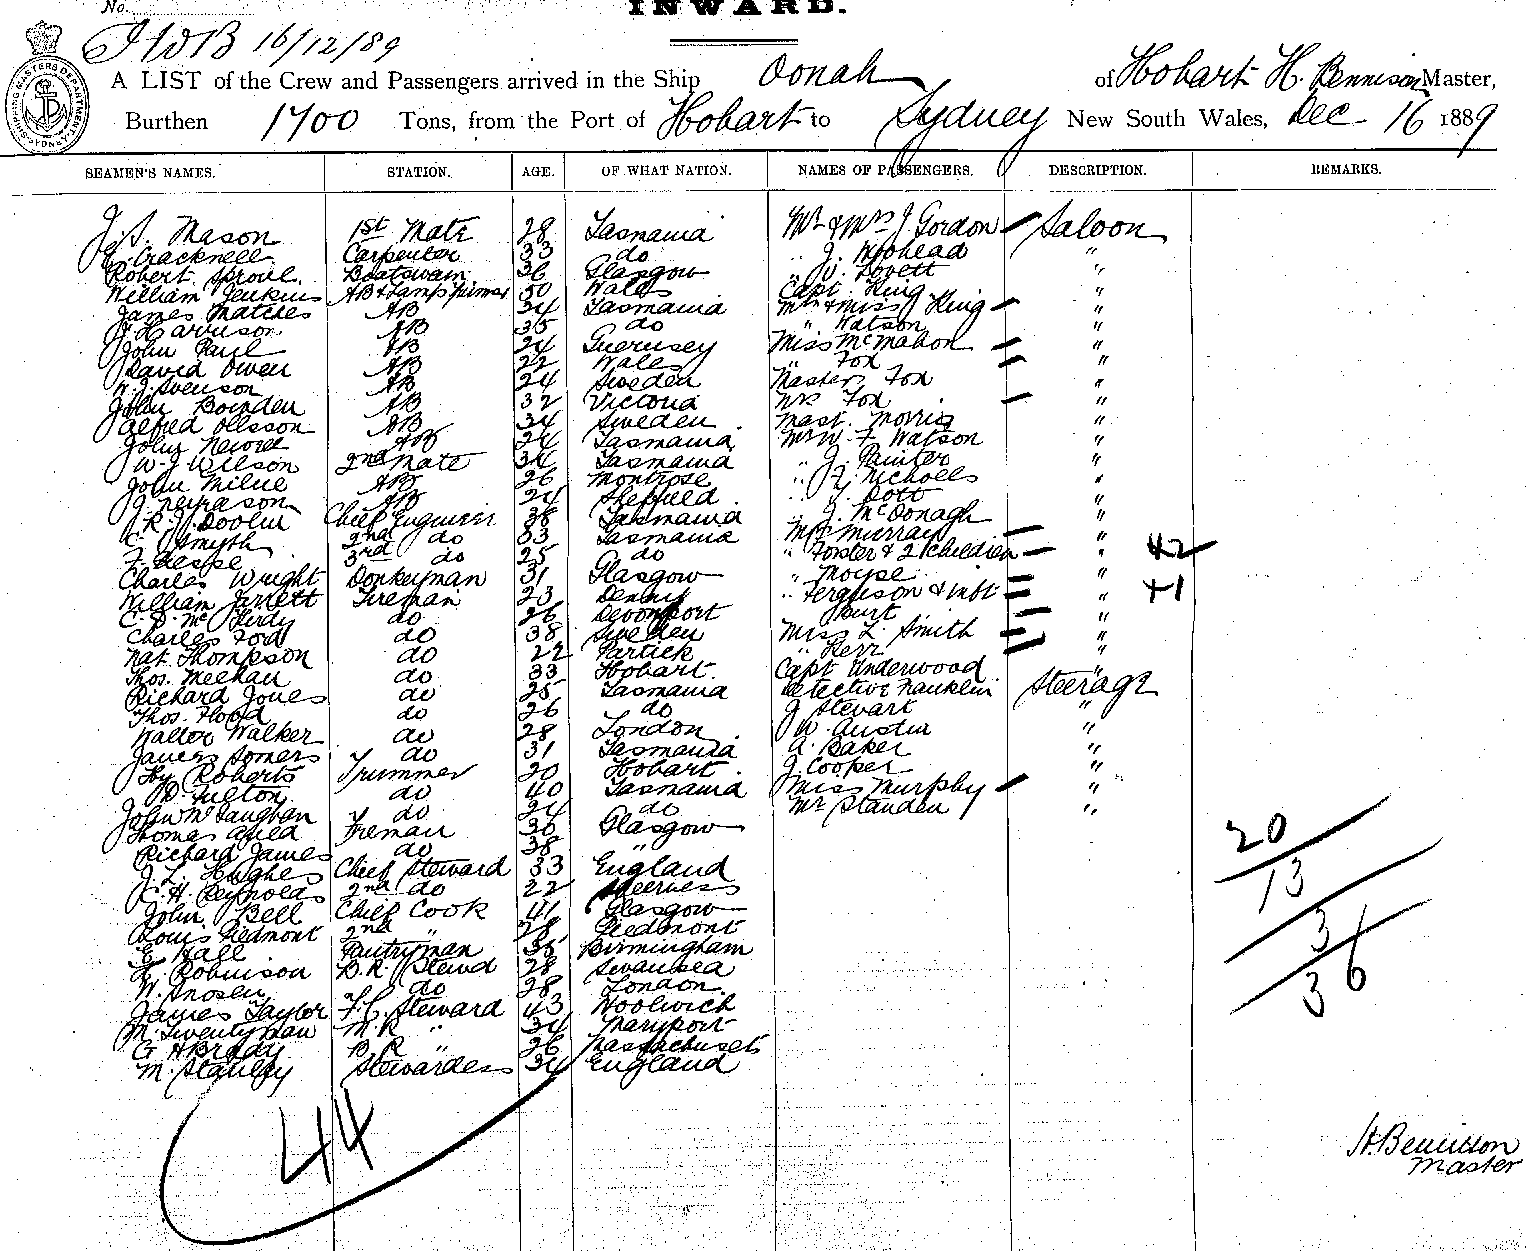 No.
INWARD.
16/12/89
A LIST of the Crew and Passengers arrived in the Ship Oonah of Hobart H. Bennison Master,
Burthen 1700 Tons, from the Port of Hobart to Sydney New South Wales, Dec 16 1889
SEAMEN'S NAMES. STATION. AGE. OF WHAT NATION. NAMES OF PASSENGERS. DESCRIPTION. REMARKS.
J. S. Mason 1st Mate 28 Tasmania Mr & Mrs J Gordon Saloon
Cracknell Carpenter 33 do " J. Woohead "
Robert Sproul Boatswain 36 Glasgow " Lovett "
William Jenkins AB & Lamp trimer 50 Wales Capt. King "
James Matches AB 34 Tasmania Mrs & Miss King "
Harrison AB 35 do " Watson "
John Paul AB 24 Guernsey Miss McMahon "
David Owen AB 22 Wales " Fox "
W. J. Svenson AB 24 Sweden Master Fox "
John Bowden AB 32 Victoria Mrs Fox "
Alfred Ollsson AB 34 Sweden Mast. Morris "
John AB 24 Tasmania Mr W. F. Watson "
W. J Wilson 2nd Mate 34 Tasmania " J. Painter "
John Milne AB 26 Montrose " Nicholls "
J. AB 24 Sheffield " Dott "
R. J. Doolin Chief Engineer 38 Tasmania " J. McDonagh "
C. Smyth 2nd do 33 Tasmania Mrs Murray "
F. 3rd do 25 do " Forster & 2 Children " +2
Charles Wright Donkeyman 31 Glasgow " Moyse "
William Jirrett Fireman 23 Denny " Ferguson & inft " +1
C. D. Mc do 26 Devonport " Burt "
Charles Ford do 38 Sweden Miss L. Smith "
Nat. Thompson do 22 Partick " Kerr "
Thos. Meehan do 33 Hobart Capt Underwood "
Richard Jones do 25 Tasmania Detective Nauklin Steerage
Thos. Flood do 26 do J Stewart "
Walter Walker do 28 London W. Austin "
James Somers do 31 Tasmania A. Baker "
Hy Roberts Trimmer 20 Hobart J. Cooper "
D. Fulton do 40 Tasmania Miss Murphy "
John McVaughan do 24 do Mr Standen "
Thomas Fireman 30 Glasgow
Richard James do 38 "
J. L. Hughes Chief Steward 33 England
C. H. Reynolds 2nd do 22
John Bell Chief Cook 41 Glasgow
Louis Piedmont 2nd " 28 Piedmont
E. Hall Pantryman 35 Birmingham
H. Robinson B.R. Stewd 28 Swansea
W. do 28 London
James Taylor F.C. Steward 43 Woolwich
M. Twentyman M.R " 34 Maryport
G. H Brady B R " 26 Massachusets
M. Stanley Stewardess 34 England
44
20
13
3
36
H. Bennison
Master